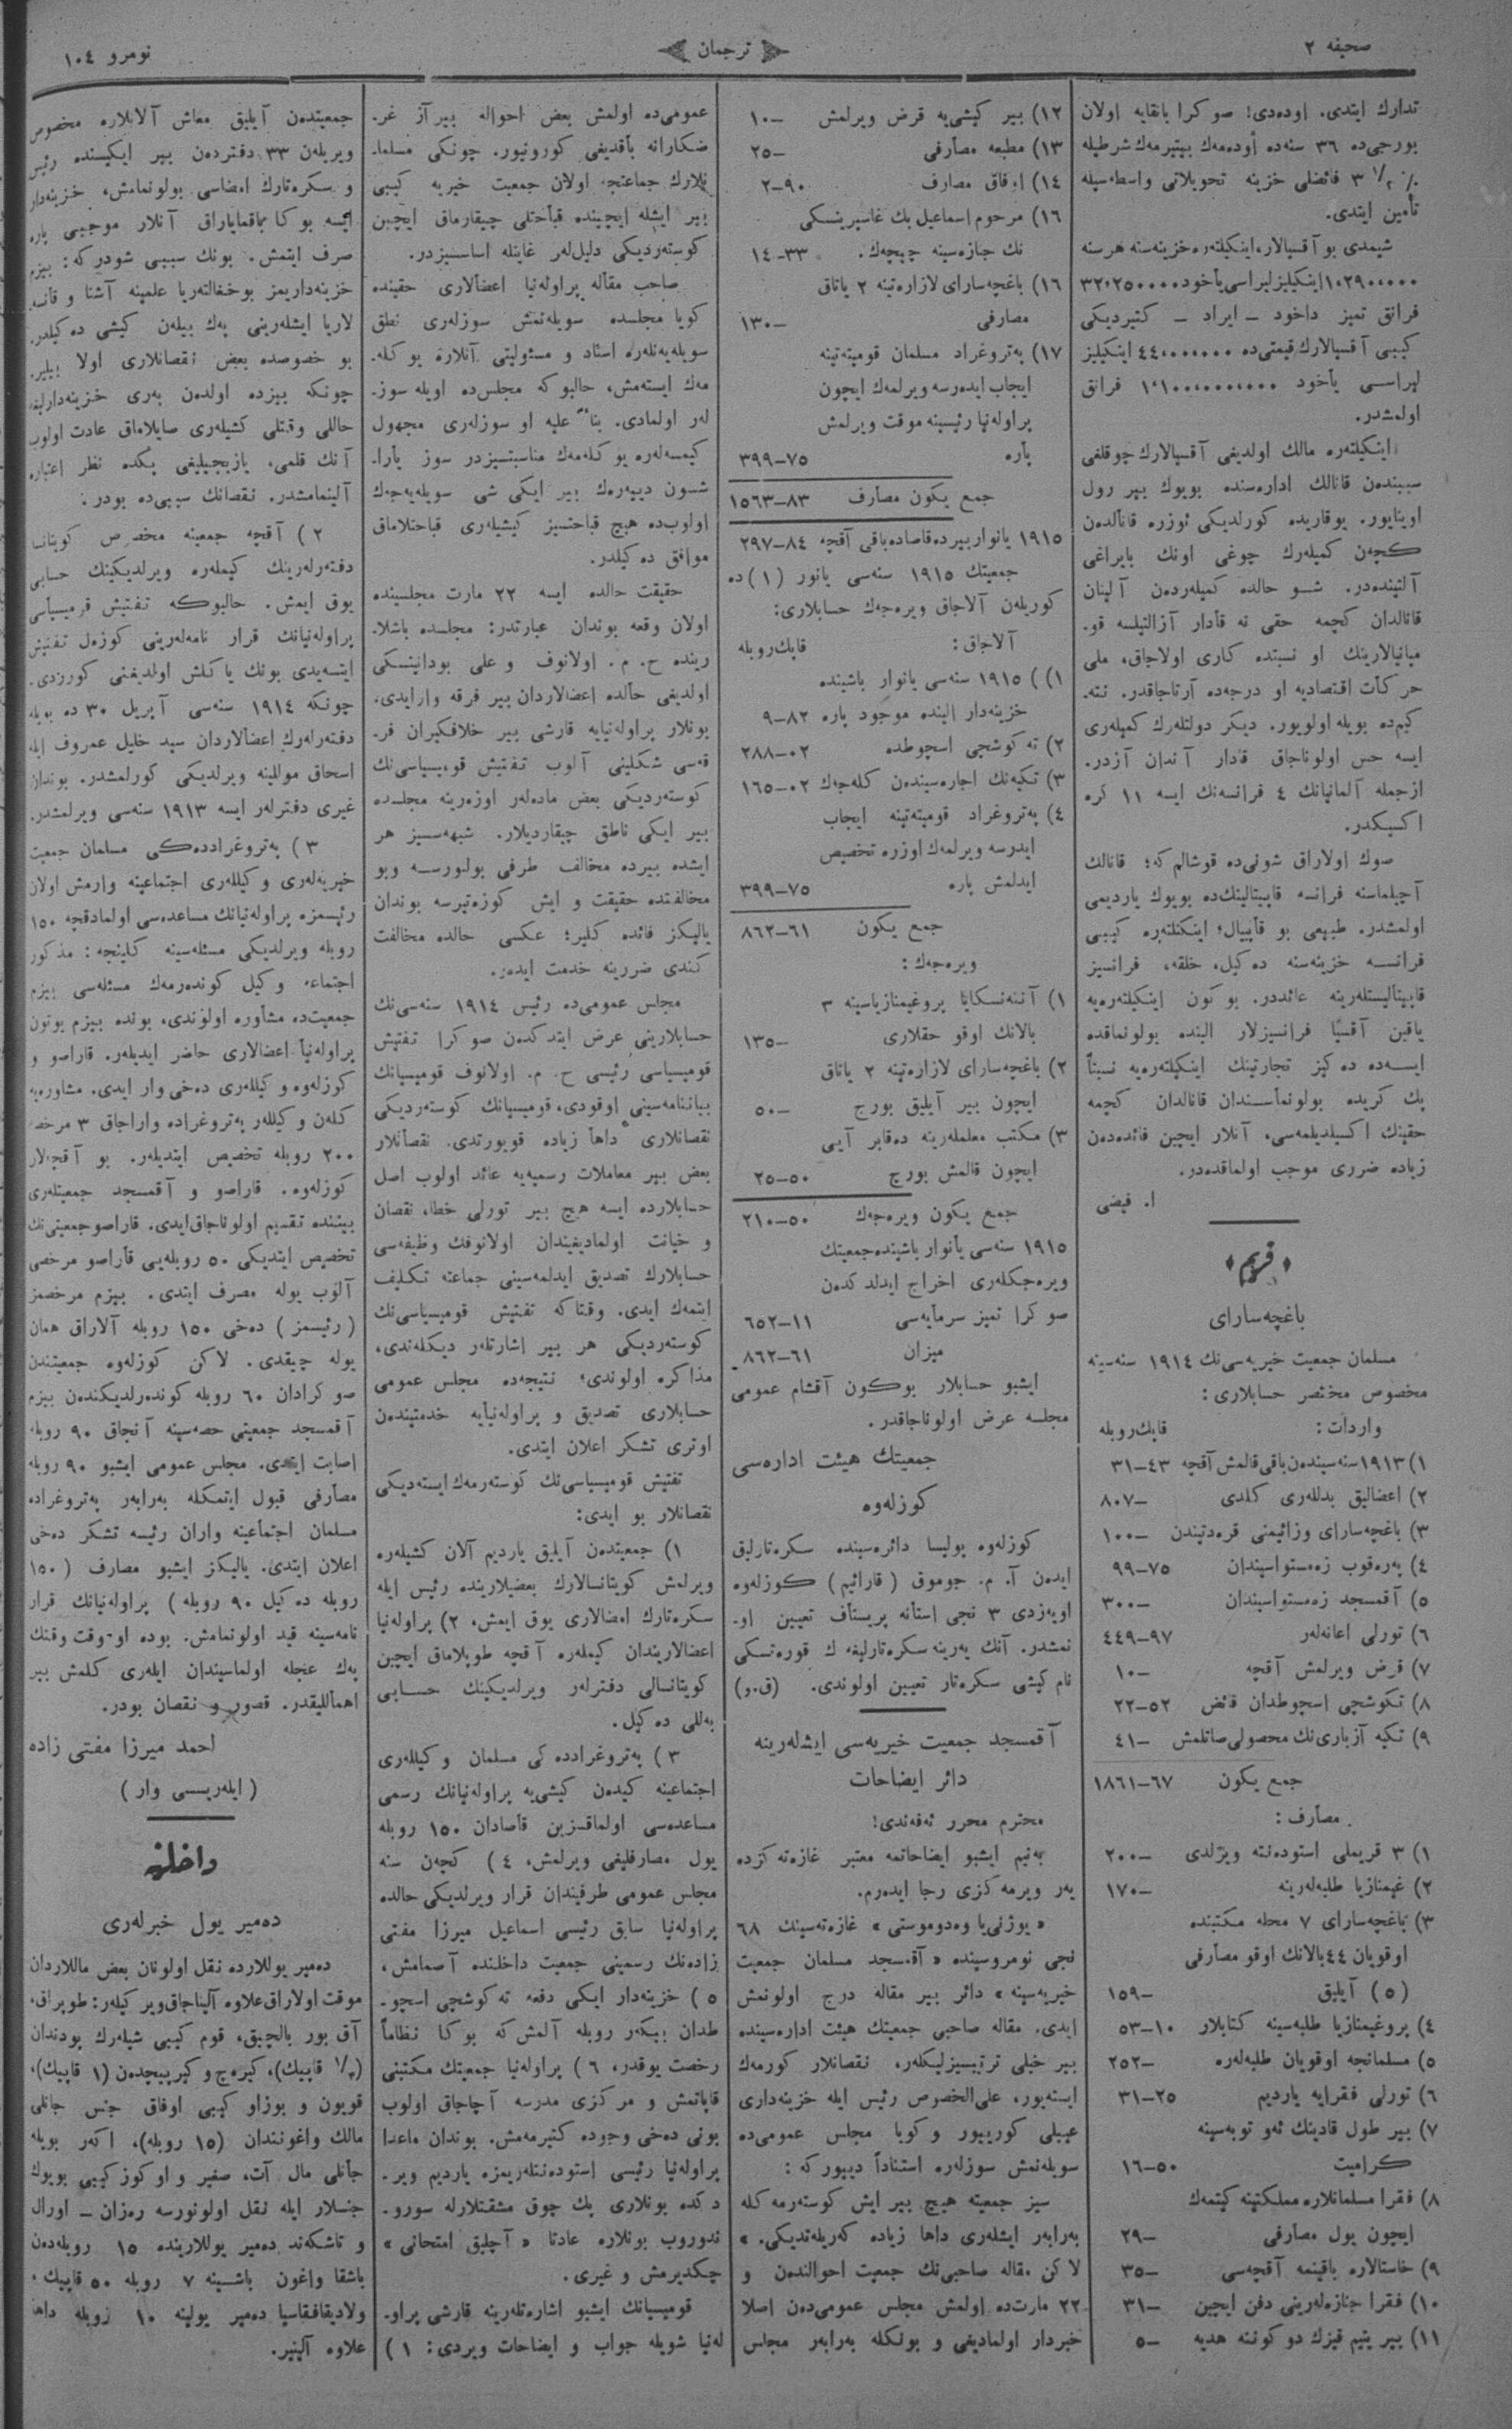 صحیفه ٢
ترجمان
نومرو ١٠٤
تدارك ایتدی. اوده‌دی! صوكرا بانقایه اولان
بورجی‌ده ٣٦ سنه‌ده أوده‌مه‌ك بیتیرمه‌ك شرطیله
٣ فائضلی خزینه تحویلاتی واسطه‌سیله
تأمین ایتدی.
شیمدی بو آقسیالار، اینكیلتەره خزینه‌سنه هر سنه
فرانق تمیز داخود — ایراد — كتیردیكی
كیبی آقسیالارك قیمتی‌ده ٤٤٠٠٠٠٠٠٠ اینكیلیز
لیراسی یأخود ١٬١٠٠٠٠٠٠٠٠٠ فرانق
اولمشدر.
اینكیلتەره مالك اولدیغی آقسیالارك چوقلغی
سببندەن قانالك ادارەسنده بویوك بیر رول
اوینایور. یوقاریده كورلدیكی ئوزره قانالدەن
كچەن كمیلەرك چوغی اونك بایراغی
آلتیندەدر. شو حالده كمیلەردەن آلینان
قانالدان كچمه حقی نه قأدار آزالتیلسه قو-
میانیالارینك او نسبتده كاری اولاجاق، ملی
حركأت اقتصادیه او درجه‌ده آرتاجاقدر. نته‌-
كیم‌ده بویله اولویور. دیكر دولتلەرك كمیلەری
ایسه حس اولوناجاق قادار آندان آزدر.
ازجمله آلمانیانك ٤ فرانسه‌نك ایسه ١١ كره
اكسیكدر.
صوك اولاراق شونی‌ده قوشالم كه؛ قانالك
آچیلماسنه فرانسه قاپیتالینك‌ده بویوك یاردیمی
اولمشدر. طبیعی بو قأپیتال؛ اینكلتەره كیبی
فرانسه خزینه‌سنه ده‌كیل، خلقه، فرانسیز
قاپیتألیستلەرینه عائددر. بوكون اینكیلتەرەیه
یاقین آقسیا فرانسیزلار الینده بولونماقده
ایسه‌ده ده‌كیز تجارتینك اینكیلتەرەیه نسبتاً
پك كریده بولونمأسندان قانالدان كچمه
حقینك اكسیلدیلمه‌سی، آنلار ایچین فائده‌دەن
زیاده ضرری موجب اولماقدەدر.
ا. فیضی
﴿قریم﴾
باغچه‌سارای
مسلمان جمعیت خیریه‌سی‌نك ١٩١٤ سنه‌سینه
مخصوص مختصر حسابلاری:
واردات: قاپك روبله
١) ١٩١٣ سنه‌سیندەن باقی قالمش آقچه ٤٣—٣١
٢) اعضالیق بدللەری كلدی —٨٠٧
٣) باغچه‌سارای وزائیمنی قرەدیتیندن —١٠٠
٤) یەرەقوب زەمستواسیندان ٧٥—٩٩
٥) آقمسجد زەمستواسیندان —٣٠٠
٦) تورلی اعانه‌لەر ٩٧—٤٤٩
٧) قرض ویرلمش آقچه —١٠
٨) تكوشچی اسچوطدان فائض ٥٢—٢٢
٩) تكیه آزباری‌نك محصولی صاتلمش —٤١
جمع یكون ٦٧—١٨٦١
مصأرف:
١) ٣ قریملی استودەنته ویرلدی —٢٠٠
٢) غیمنازیا طلبه‌لەرینه —١٧٠
٣) باغچه‌سارای ٧ محله مكتبنده
اوقویان ٤٤ بالانك اوقو مصأرفی
(٥) آیلیق —١٥٩
٤) پروغیمنازیا طلبه‌سینه كتابلار ١٠—٥٣
٥) مسلمانجه اوقویان طلبه‌لەره —٢٥٢
٦) تورلی فقرایه یاردیم ٢٥—٣١
٧) بیر طول قادینك ئەو توبه‌سینه
كرامیت ٥٠—١٦
٨) فقرا مسلمانلاره مملكتینه كیتمەك
ایچون یول مصأرفی —٢٩
٩) خاستالاره باقینمه آقچه‌سی —٣٥
١٠) فقرا جنازه‌لەرینی دفن ایچین —٣١
١١) بیر یتیم قیزك دوكوننه هدیه —٥
١٢) بیر كیشی‌یه قرض ویرلمش —١٠
١٣) مطبعه مصأرفی —٢٥
١٤) اوفاق مصارف ٩٠—٢
١٦) مرحوم اسماعیل بك غاسپرینسكی
نك جنازه‌سینه چیچەك. ٣٣—١٤
١٦) باغچه‌سارای لازارەتینه ٢ یاتاق
مصارفی —١٣٠
١٧) پەتروغراد مسلمان قومیتەتینه
ایجاب ایدەرسه ویرلمەك ایچون
پراولەنیا رئیسینه موقت ویرلمش
پأره ٧٥—٣٩٩
جمع یكون مصأرف ٨٣—١٥٦٣
١٩١٥ یانوار بیرده قاصاده باقی آقچه ٨٤—٢٩٧
جمعیتك ١٩١٥ سنه‌سی یانور (١) ده
كوریلەن آلاجاق ویرەجەك حسابلاری:
آلاجاق: قاپك روبله
١) ١٩١٥ سنه‌سی یانوار باشینده
خزینه‌دار الینده موجود پاره ٨٢—٩
٢) تەكوشچی اسچوطده ٠٢—٢٨٨
٣) تكیه‌نك اجاره‌سیندەن كله‌جەك ٠٢—١٦٥
٤) پەتروغراد قومیتەتینه ایجاب
ایدرسه ویرلمەك اوزره تخصیص
ایدلمش پاره ٧٥—٣٩٩
جمع یكون ٦١—٨٦٢
ویره‌جەك:
١) آننەنسكایا پروغیمنازیاسینه ٣
بالانك اوقو حقلاری —١٣٥
٢) باغچه‌سارای لازارەتینه ٢ یاتاق
ایچون بیر آیلیق بورج —٥٠
٣) مكتب معلمله‌رینه دەقابر آیی
ایچون قالمش بورج ٥٠—٢٥
جمع یكون ویره‌جەك ٥٠—٢١٠
١٩١٥ سنه‌سی یأنوار باشینده جمعیتك
ویره‌جكلەری اخراج ایدلدكدەن
صوكرا تمیز سرمأیه‌سی ١١—٦٥٢
میزان ٦١—٨٦٢
ایشبو حسابلار بوكون آقشام عمومی
مجلسه عرض اولوناجاقدر.
جمعیتك هیئت ادارەسی
كوزلەوه
كوزلەوه پولیسا دائرەسینده سكرەتارلیق
ایدەن آ. م. جوموق (قارائیم) كوزلەوه
اویەزدی ٣ نجی استانه پریستأف تعیین او-
نمشدر. آنك یەرینه سكرەتارلیغه ك قورەتسكی
نام كیشی سكرەتار تعیین اولوندی. (ق.و)
آقمسجد جمعیت خیریه‌سی ایشلەرینه
دائر ایضاحات
محترم محرر ئەفەندی!
بەنیم ایشبو ایضاحاتمه معتبر غازەتەكزده
یەر ویرمەكزی رجا ایدەرم.
«یوژنی‌یا وەدوموستی» غازەتەسینك ٦٨
نجی نومروسینده «آقمسجد مسلمان جمعیت
خیریه‌سینه» دائر بیر مقاله درج اولونمش
ایدی. مقاله صاحبی جمعیتك هیئت ادارەسینده
بیر خیلی ترتیبسیزلیكلەر، نقصانلار كورمەك
ایستەیور، علی‌الخصوص رئیس ایله خزینه‌داری
عیبلی كوریپور و كویا مجلس عمومی‌ده
سویلەنمش سوزلەره استناداً دیپوركه:
سیز جمعیته هیچ بیر ایش كوستەرمه‌كله
بەرابەر ایشلەری داها زیاده كەریلەتدیكی.»
لاكن مقاله صاحبی‌نك جمعیت احوالندەن و
٢٢ مارت‌ده اولمش مجلس عمومی‌دەن اصلا
خبردار اولمادیغی و بونكله بەرابەر مجلس
عمومی‌ده اولمش بعض احواله بیر آز غر-
ضكارانه بأقدیغی كورونیور. چونكی مسلما-
نلارك جماعتجه اولان جمعیت خیریه كیبی
بیر ایشله ایچینده قبأحتلی چیقارماق ایچین
كوستەردیكی دلیل‌لەر غاینله اساسسیزدر.
صاحب مقاله پراولەنیا اعضألاری حقینده
كویا مجلسده سویلەنمش سوزلەری نطق
سویلەیەنلەره اسناد و مسئولیتی آنلاره یوكله‌-
مەك ایستەمش، حالبوكه مجلس‌ده اویله سوز-
لەر اولمادی. بناءً علیه او سوزلەری مجهول
كیمسه‌لەره یوكلەمەك مناسبتسیزدر سوز یأرا-
شسون دییەرەك بیر ایكی شی سویلەیەجەك
اولوب‌ده هیچ قباحتسیز كیشیلەری قباحتلاماق
موافق ده‌كیلدر.
حقیقت حالده ایسه ٢٢ مارت مجلسینده
اولان وقعه بوندان عبارتدر: مجلسده باشلا-
رینده ح. م. اولانوف و علی بودانینسكی
اولدیغی حألده اعضالاردان بیر فرقه وارایدی،
بونلار پراولەنیایه قارشی بیر خلافگیران فر-
قه‌سی شكلینی آلوب تفتیش قومیسیاسی‌نك
كوستەردیكی بعض ماده‌لەر اوزەرینه مجلسده
بیر ایكی ناطق چیقاردیلار. شبهه‌سیز هر
ایشده بیرده مخالف طرفی بولنورسه وبو
مخالفتده حقیقت و ایش كوزەتیرسه بوندان
یالیكز فائده كلیر؛ عكسی حالده مخالفت
كندی ضررینه خدمت ایدەر.
مجلس عمومی‌ده رئیس ١٩١٤ سنه‌سی‌نك
حسابلارینی عرض ایتدكدەن صوكرا تفتیش
قومیسیاسی رئیسی ح. م. اولانوف قومیسیانك
بیاننامه‌سینی اوقودی، قومیسیانك كوستەردیكی
نقصانلاری داها زیاده قویورتدی. نقصأنلار
بعض بیر معاملات رسمیه‌یه عائد اولوب اصل
حسابلارده ایسه هیچ بیر تورلی خطا، نقصان
و خیانت اولمادیغیندان اولانوفك وظیفه‌سی
حسابلارك تصدیق ایدلمه‌سینی جماعته تكلیف
ایتمەك ایدی. وقتاكه تفتیش قومیسیاسی‌نك
كوستەردیكی هر بیر اشارتلەر دیكلەندی،
مذاكره اولوندی؛ نتیجه‌ده مجلس عمومی
حسابلاری تصدیق و پراولەنیأیه خدمتیندەن
اوتری تشكر اعلان ایتدی.
تفتیش قومیسیاسی‌نك كوستەرمەك ایستەدیكی
نقصانلار بو ایدی:
١) جمعیتدەن آیلیق یاردیم آلان كشیلەره
ویرلمش كویتانسالارك بعضیلارینده رئیس ایله
سكرەتارك امضالاری یوق ایمش، ٢) پراولەنیا
اعضالاریندان كیملەره آقچه طوپلاماق ایچین
كویتانسالی دفترلەر ویرلدیكینك حسابی
بەللی ده‌كیل.
٣) پەتروغرادده‌كی مسلمان وكیللەری
اجتماعینه كیدەن كیشی‌یه پراولەنیانك رسمی
مساعده‌سی اولماقسزین قاصادان ١٥٠ روبله
یول مصارفلیغی ویرلمش، ٤) كچەن سنه
مجلس عمومی طرفیندان قرار ویرلدیكی حالده
پراولەنیا سابق رئیسی اسماعیل میرزا مفتی
زاده‌نك رسمینی جمعیت داخلنده آصمامش،
٥) خزینه‌دار ایكی دفعه تەكوشچی اسچو-
طدان بیكەر روبله آلمش كه بوكا نظاماً
رخصت یوقدر، ٦) پراولەنیا جمعیتك مكتبنی
قاپاتمش و مركزی مدرسه آچاجاق اولوب
بونی دەخی وجوده كتیرمەمش. بوندان ماعدا
پراولەنیا رئیسی استودەنتلەریمزه یاردیم ویر-
دكده بونلاری پك چوق مشقتلارله سورو-
ندوروب بونلاره عادتا «آچلیق امتحانی»
چكدیرمش و غیری.
قومیسیانك ایشبو اشارەتلەرینه قارشی پراو-
لەنیا شویله جواب و ایضاحات ویردی: ١)
جمعیتدەن آیلیق معاش آلانلاره مخصوص
ویریلەن ٣٣ دفتردەن بیر ایكیسنده رئیس
و سكرەتارك امضاسی بولونمامش، خزینه‌دار
ایسه بوكا باقمایاراق آنلار موجبی پاره
صرف ایتمش. بونك سببی شودركه: بیزم
خزینه‌داریمز بوخغالتەریا علمینه آشنا و قانسه-
لاریا ایشلەرینی پەك بیلەن كیشی ده‌كیلدر.
بو خصوصده بعض نقصانلاری اولا بیلیر.
چونكه بیزده اولدەن بەری خزینه‌دارلیغه
حاللی وقتلی كشیلەری صایلاماق عادت اولوب
آنك قلمی، یازیجیلیغی پكده نظر اعتباره
آلینمامشدر. نقصانك سببی‌ده بودر.
٢) آقچه جمعینه مخصوص كویتانسا
دفتەرلەرینك كیملەره ویرلدیكینك حسابی
یوق ایمش. حالبوكه تفتیش قومیسیأسی
پراولەنیانك قرار نامه‌لەرینی كوزەل تفتیش
ایتسەیدی بونك یاكلش اولدیغنی كورردی.
چونكه ١٩١٤ سنه‌سی آپریل ٣٠ ده بویله
دفتەرلەرك اعضألاردان سید خلیل عمروف ایله
اسحاق موللینه ویرلدیكی كورلمشدر. بوندان
غیری دفترلەر ایسه ١٩١٣ سنه‌سی ویرلمشدر.
٣) پەتروغرادده‌كی مسلمان جمعیت
خیریه‌لەری وكیللەری اجتماعینه وارمش اولان
رئیسمزه پراولەنیانك مساعده‌سی اولمادقچه ١٥٠
روبله ویرلدیكی مسئله‌سینه كلینجه: مذكور
اجتماعه وكیل كوندەرمەك مسئله‌سی بیزم
جمعیت‌ده مشأوره اولوندی، بونده بیزم بوتون
پراولەنیأ اعضالاری حاضر ایدیلەر. قاراصو و
كوزلەوه وكیللەری دەخی وار ایدی. مشاوره‌یه
كلەن وكیللەر پەتروغراده واراجاق ٣ مرخصه
٢٠٠ روبله تخصیص ایتدیلەر. بو آقچه‌لار
كوزلەوه، قاراصو و آقمسجد جمعیتلەری
بیننده تقسیم اولوناجاق‌ایدی. قاراصو جمعیتی‌نك
تخصیص ایتدیكی ٥٠ روبله‌یی قأراصو مرخصی
آلوب یوله مصرف ایتدی. بیزم مرخصمز
(رئیسمز) دەخی ١٥٠ روبله آلاراق همان
یوله چیقدی. لاكن كوزلەوه جمعیتندن
صوكرادان ٦٠ روبله كوندەرلدیكندەن بیزم
آقمسجد جمعیتی حصه‌سینه آنجاق ٩٠ روبله
اصابت ایتدی. مجلس عمومی ایشبو ٩٠ روبله
مصأرفی قبول ایتمكله بەرابەر پەتروغراده
مسلمان اجتمأعینه واران رئیسه تشكر دەخی
اعلان ایتدی. یالیكز ایشبو مصارف (١٥٠
روبله ده‌كیل ٩٠ روبله) پراولەنیانك قرار
نامه‌سینه قید اولونمامش. بوده او وقت وقتك
پەك عجله اولماسیندان ایلەری كلمش بیر
اهمأللیقدر. قصور و نقصان بودر.
احمد میرزا مفتی زاده
(ایلەریسی وار)
داخلیه
دەمیر یول خبرلەری
دەمیر یوللارده نقل اولونان بعض ماللاردان
موقت اولاراق علاوه آلیناجاق ویركیلەر: طوپراق،
آق بور بالچیق، قوم كیبی شیلەرك پودندان
(قاپیك)، كیرەچ و كیرپیچدەن (١ قاپیك)،
قویون و بوزاو كیبی اوفاق جنس جانلی
مالك واغونندان (١٥ روبله)، اكەر بویله
جأنلی مال آت، صغیر و اوكوز كیبی بویوك
جنسلار ایله نقل اولونورسه رەزان — اورال
و تاشكەند دەمیر یوللارینده ١٥ روبله‌دەن
باشقا واغون باشینه ٧ روبله ٥٠ قاپیك.
ولادیقافقاسیا دەمیر یولینه ١٠ روبله داها
علاوه آلینیر.